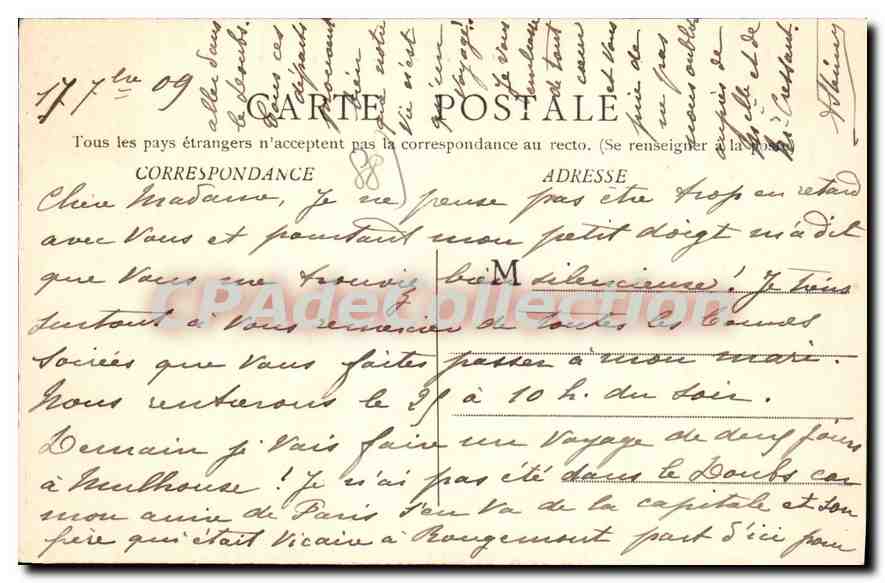 17 7bre 09
CARTE POSTALE
Tous les pays étrangers n'acceptent pas la correspondance au recto. (Se renseigner à la poste)
CORRESPONDANCE
ADRESSE
88
M
CPAdeCollection
Chère Madame, Je ne pense pas être trop en retard
avec vous et pourtant mon petit doigt m'a dit
que vous me trouviez bien silencieuse! Je tiens
surtout à vous remercier de toutes les bonnes
soirées que vous faites passer à mon mari.
Nous rentrerons le 25 à 10 h. du soir.
Demain je vais faire un voyage de deux jours
à Mulhouse! Je n'ai pas été dans le Doubs car
mon amie de Paris s'en va de la capitale et son
frère qui était vicaire à Rougemont part d'ici pour
aller dans
le Doubs.
Tous ces
départs
prouvent
bien
que notre
vie n'est
qu'un
voyage!
Je vous
embrasse
de tout
cœur
et vous
prie de
ne pas
nous oublier
auprès de
Mlle et de
Mr